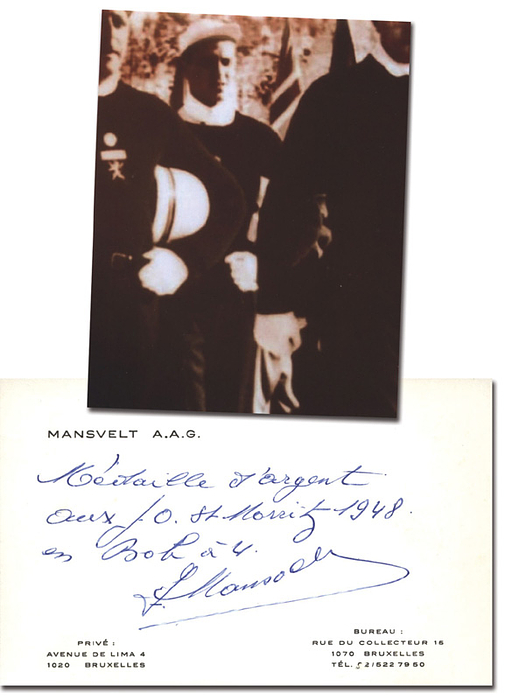 MANSVELT A.A.G.
Médaille d'argent
aux J.O. St Morritz 1948.
en Bob à 4.
PRIVÉ :
AVENUE DE LIMA 4
1020 BRUXELLES
BUREAU :
RUE DU COLLECTEUR 16
1070 BRUXELLES
TÉL. 02/522 79 50